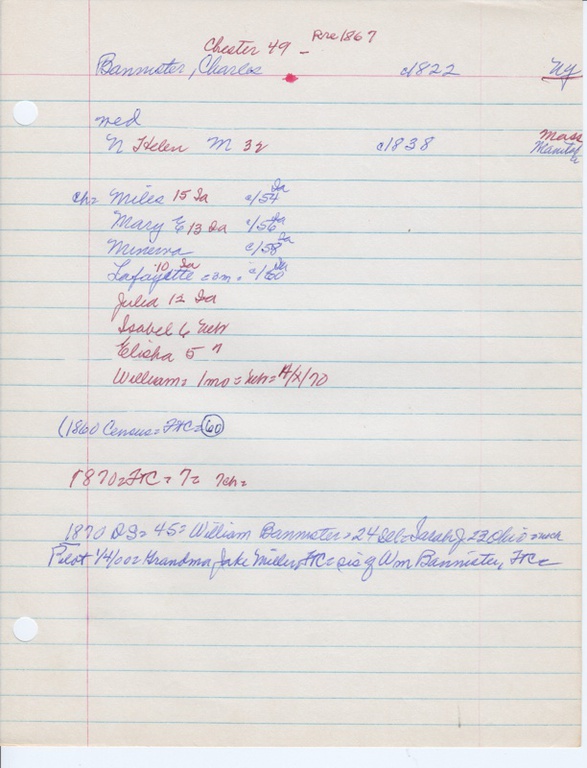 Chester 49 - Pre 1867
Bannister, Charles c1822 NY
wed
N Helen M 32 c1838 Mass
ch= Miles 15 Ia c/54 Ia
Mary E 13 Ia c/56 Ia
Minerva c/58 Ia
Lafayette = 3m = c/60 Ia
10 Ia
Julia 12 Ia
Isabel 6 Neb
Elisha 5 "
William = 1mo = Neb = A/X/70
(1860 Census = FHC = 60
1870 = FHC = 7 = 7ch =
1870 DS = 45 = William Bannister = 24 Del = Sarah J = 22 Ohio =
Pilot 1/4/00 = Grandma Jake Miller, FHC = sis of Wm Bannister, FHC =